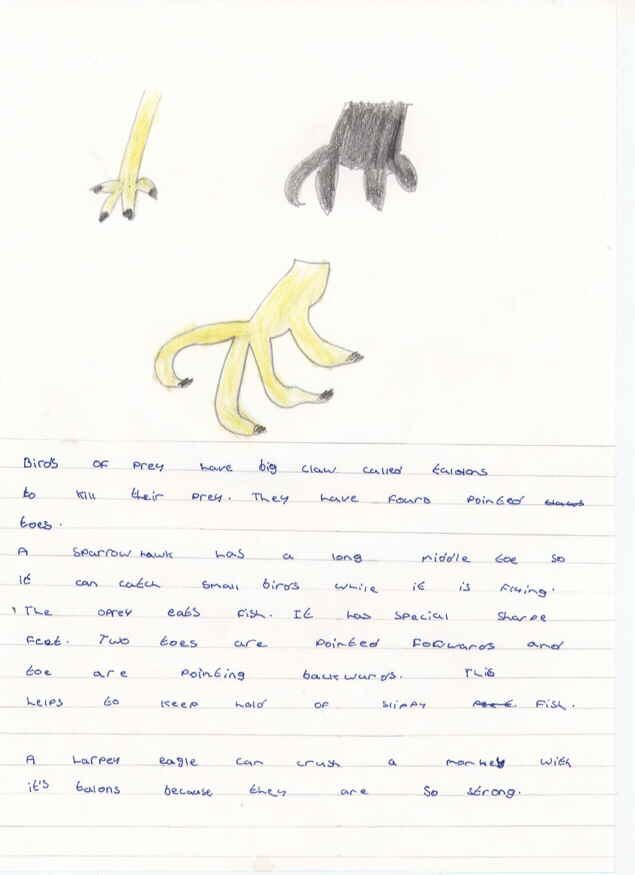 Birds of prey have big claw called talolons
to kill their prey. They have fourd pointed
toes.
A sparrow hawk has a long middle toe so
it can catch small birds while it is flying.
The oprey eats fish. It has special sharpe
feet. Two toes are pointed forwards and
toe are pointing backwards. This
helps to keep hold of slippy fish.
A harpey eagle can crush a monkey with
it's talons because they are so strong.